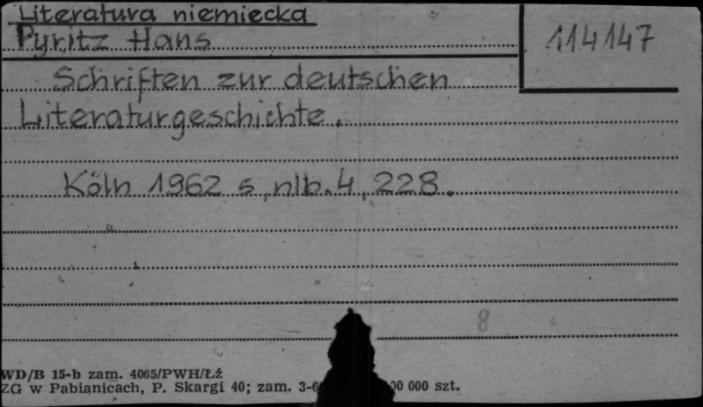 Literatura niemiecka
Pyritz Hans
114147
Schriften zur deutschen
Literaturgeschichte.
Köln 1962 s, nlb. 4, 228.
8
WD/B 15-b zam. 4065/PWH/Łź
ZG w Pabianicach, P. Skargi 40; zam. 3-6 00 000 szt.